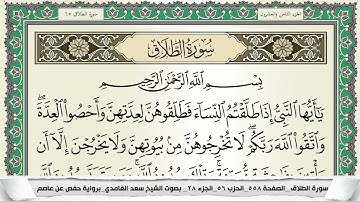 الجزء الثامن والعشرون
سورة الطلاق ٦٥
سُورَةُ الطَّلَاقِ
بِسْمِ اللَّهِ الرَّحْمَٰنِ الرَّحِيمِ
يَا أَيُّهَا النَّبِيُّ إِذَا طَلَّقْتُمُ النِّسَاءَ فَطَلِّقُوهُنَّ لِعِدَّتِهِنَّ وَأَحْصُوا الْعِدَّةَ
وَاتَّقُوا اللَّهَ رَبَّكُمْ لَا تُخْرِجُوهُنَّ مِنْ بُيُوتِهِنَّ وَلَا يَخْرُجْنَ إِلَّا أَنْ
سورة الطلاق_الصفحة ٥٥٨_الحزب ٥٦_الجزء ٢٨_ بصوت الشيخ سعد الغامدي_برواية حفص عن عاصم